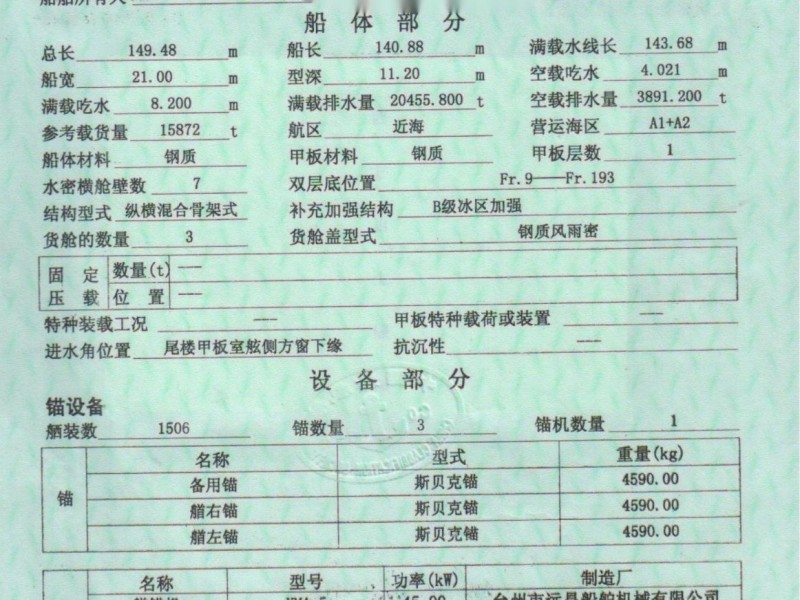 船舶所有人
船 体 部 分
总长 149.48 m 船长 140.88 m 满载水线长 143.68 m
船宽 21.00 m 型深 11.20 m 空载吃水 4.021 m
满载吃水 8.200 m 满载排水量 20455.800 t 空载排水量 3891.200 t
参考载货量 15872 t 航区 近海 营运海区 A1+A2
船体材料 钢质 甲板材料 钢质 甲板层数 1
水密横舱壁数 7 双层底位置 Fr.9——Fr.193
结构型式 纵横混合骨架式 补充加强结构 B级冰区加强
货舱的数量 3 货舱盖型式 钢质风雨密
固 定 数量(t) ---
压 载 位 置 ---
特种装载工况 --- 甲板特种载荷或装置 ---
进水角位置 尾楼甲板室舷侧方窗下缘 抗沉性 ---
设 备 部 分
锚设备
舾装数 1506 锚数量 3 锚机数量 1
名称 型式 重量(kg)
锚 备用锚 斯贝克锚 4590.00
艏右锚 斯贝克锚 4590.00
艏左锚 斯贝克锚 4590.00
名称 型号 功率(kW) 制造厂
45.00 台州市远昌船舶机械有限公司